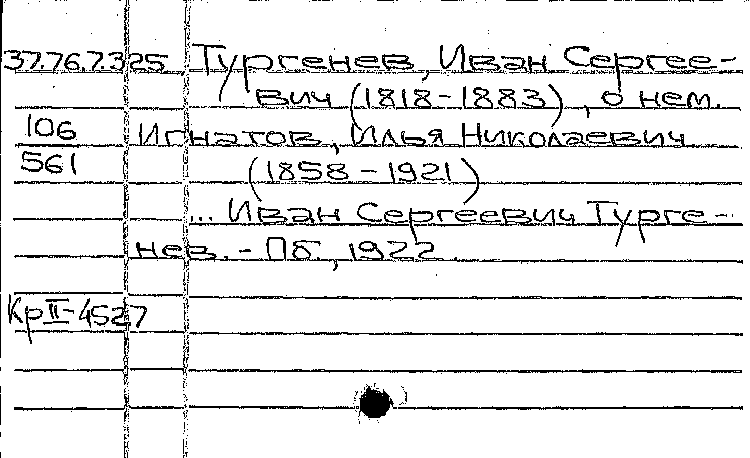 37.76.7.325 Тургенев, Иван Сергее-
вич (1818-1883), о нем.
106 Игнатов, Илья Николаевич
561 (1858-1921)
... Иван Сергеевич Турге-
нев. - Пб., 1922.
Кр II-4527